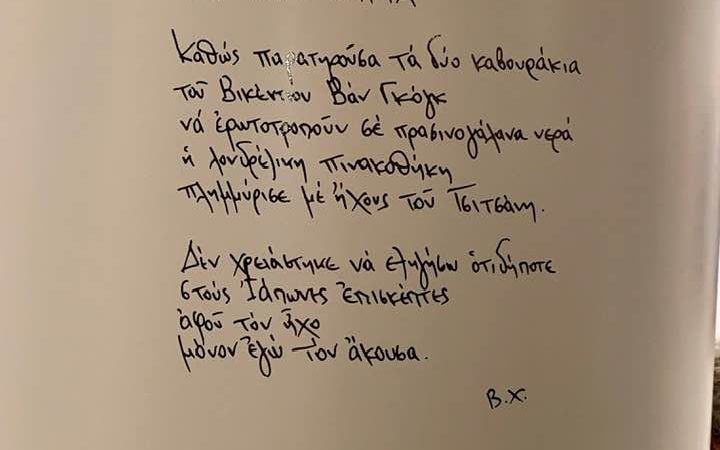 Καθώς παρατηρούσα τά δύο καβουράκια
τοῦ Βικέντιου Βάν Γκόγκ
νά ἐρωτοτροποῦν σέ πρασινογάλανα νερά
ἡ λονδρέζικη πινακοθήκη
πλημμύρισε μέ ἤχους τοῦ Τσιτσάνη.
Δέν χρειάστηκε νά εξηγήσω ὁτιδήποτε
στούς Ἰάπωνες ἐπισκέπτες
ἀφοῦ τόν ἦχο
μόνον ἐγώ τόν ἄκουσα.
Β.Χ.